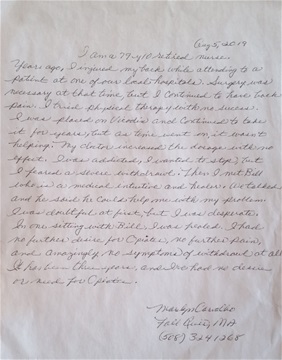 Aug 5, 2019
I am a 79 y/o retired nurse.
Years ago, I injured my back while attending to a
patient at one of our local hospitals. Surgery was
necessary at that time, but I continued to have back
pain. I tried physical therapy with no success.
I was placed on Vicodin and continued to take
it for years, but as time went on it wasn't
helping. My doctor increased the dosage with no
effect. I was addicted, I wanted to stop, but
I feared a severe withdrawal. Then I met Bill
who is a medical intuitive and healer. We talked
and he said he could help me with my problem.
I was doubtful at first, but I was desperate.
In one setting with Bill, I was healed. I had
no further desire for Opiates, no further pain,
and amazingly no symptoms of withdrawal at all.
It has been three years, and I've had no desire
or need for Opiates.
Marlyn
Fall River, MA
(508) 324 1265